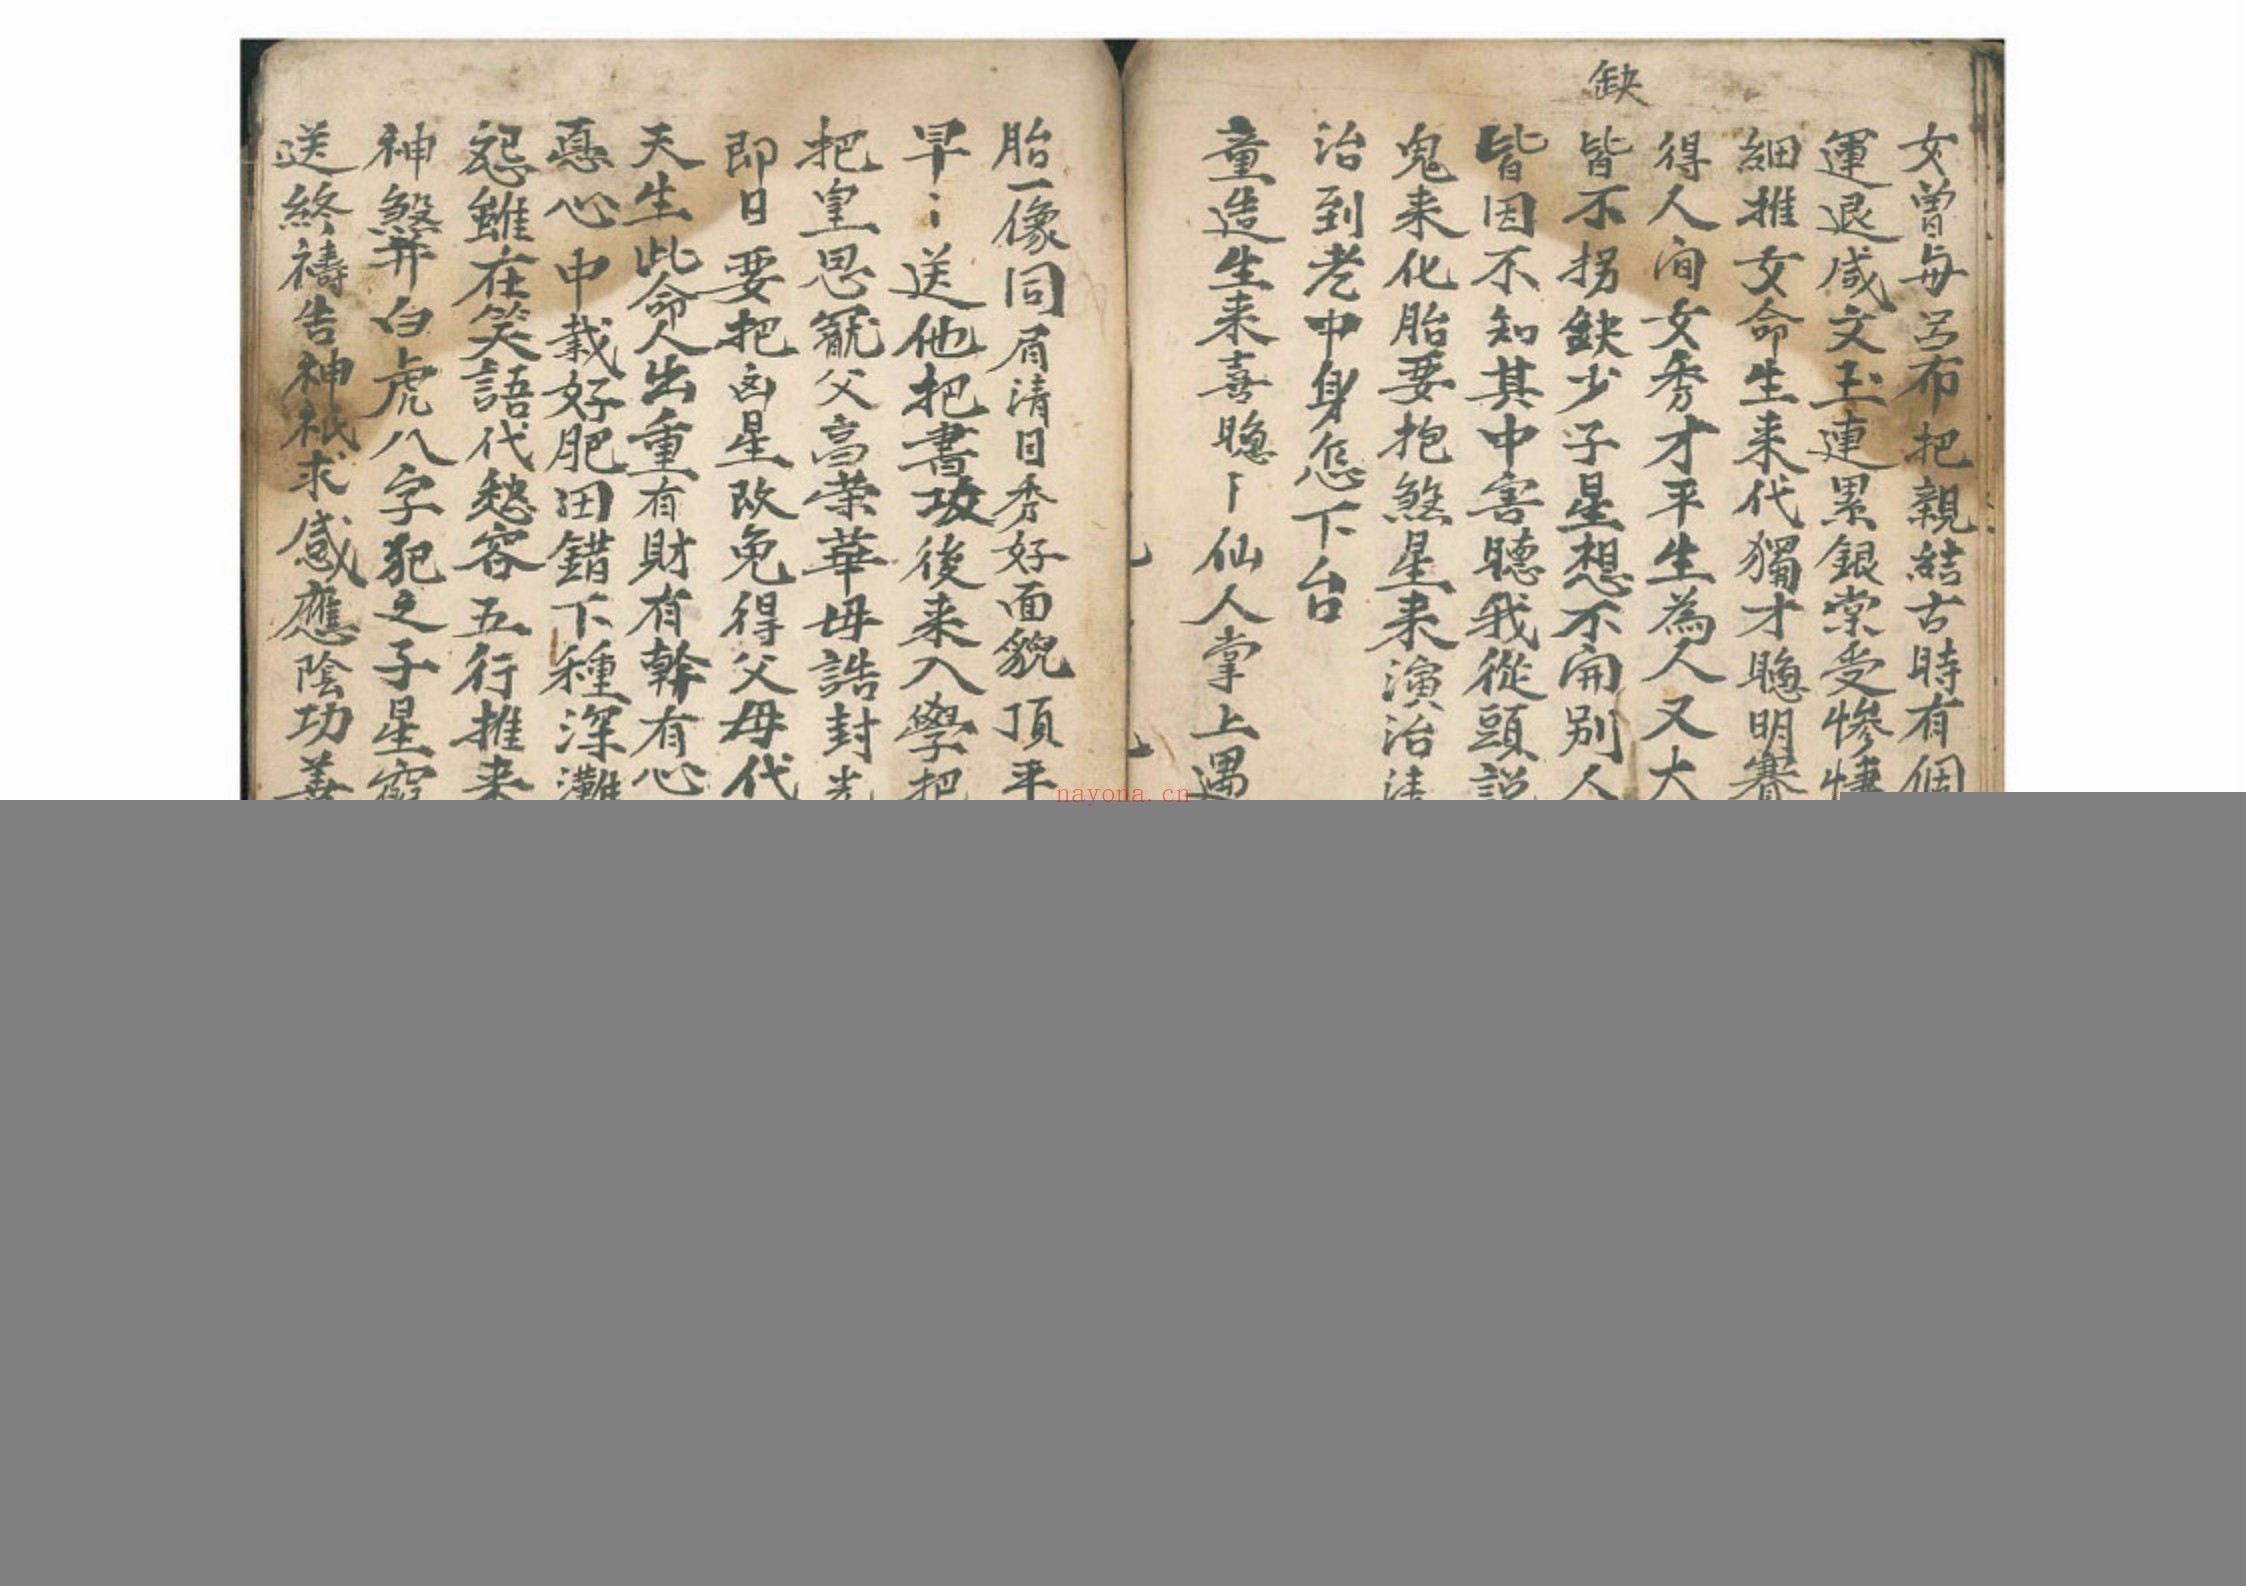 缺
女曾每呂布把親結古時有個
運退咸文玉連累銀棠受慘悽
細推女命生来代獨才聰明賽
得人间女秀才平生為人又大
皆不拐缺少子星想不開别人
皆因不知其中害聽我從頭説
鬼来化胎要抱煞星来演治法
治到老中身怎下台
童造生来喜聰下仙人掌上遇
胎一像同眉清目秀好面貌頂平
早:送他把書攻後来入學把
把皇恩寵父高荣華毋誥封光
即日要把凶星改免得父母代
天生此命人出重有財有幹有心
惪心中栽好肥田錯下種深灘
怨雖在笑語代愁容五行推来
神煞并白虎八字犯之子星
送終禱告神祇求感應陰功善
nayona.cn